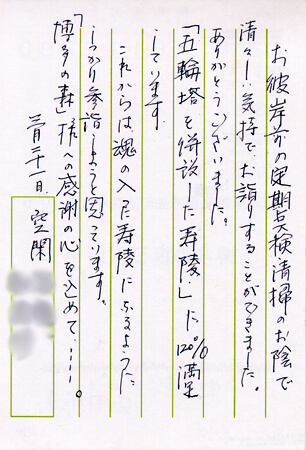 お彼岸前の定期点検清掃のお陰で
清々しい気持で、お詣りすることができました。
ありがとうございました。
「五輪塔を併設した寿陵」に120%満足
しています。
これからは、魂の入った寿陵になるように
しっかり参詣しようと思っています。
「博多の森」様への感謝の心を込めて、……。
三月二十一日